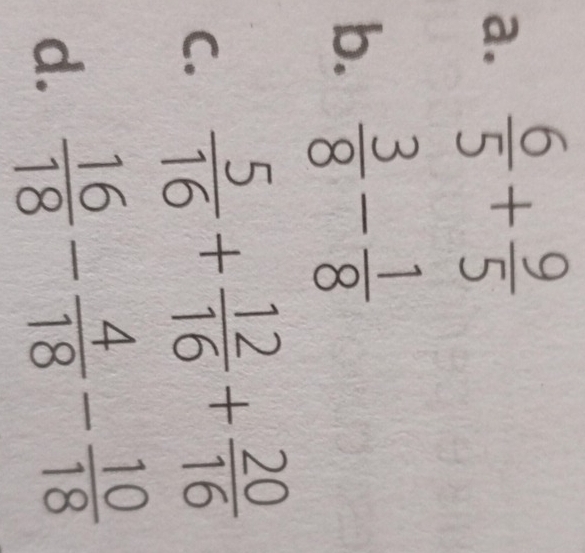 a. 6/5 + 9/5
b. 3/8 − 1/8
c. 5/16 + 12/16 + 20/16
d. 16/18 − 4/18 − 10/18